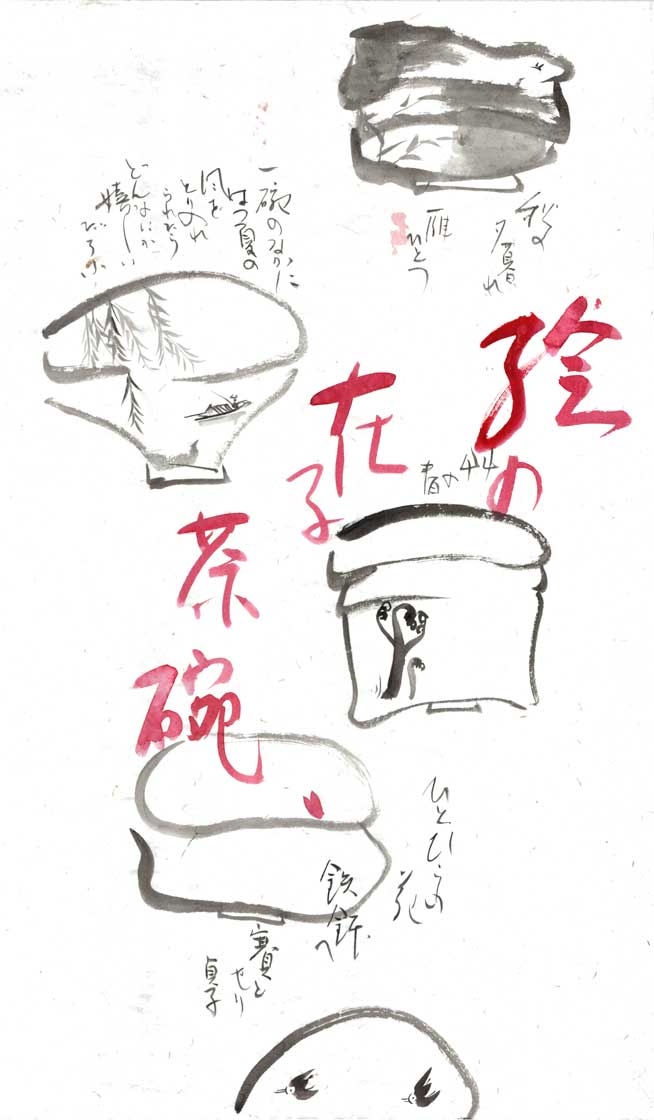 秋
夕暮れ
雁
ひとつ
一碗のなかに
はつ夏の
風を
とりいれ
られたら
どんなにか
嬉しい
だろふ
絵の
在る
茶碗
春の艸
ひとひらの
花
鉄鉢へ
と
せり
貞子